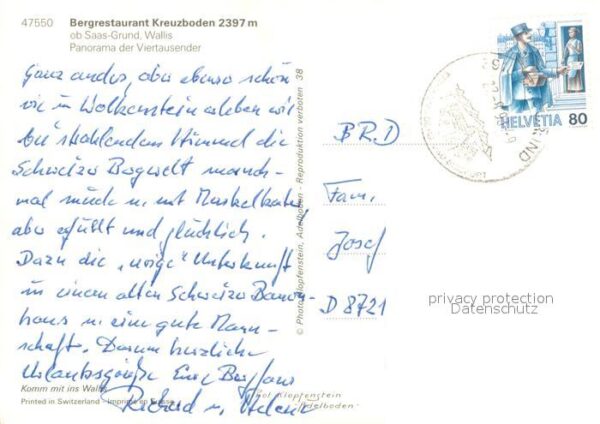 47550 Bergrestaurant Kreuzboden 2397 m
ob Saas-Grund, Wallis
Panorama der Viertausender
Ganz anders, aber ebenso schön
wie in Wolkenstein erleben wir
bei strahlendem Himmel die
Schweizer Bergwelt manch-
mal müde u. mit Muskelkater,
aber erfüllt und glücklich.
Dazu die „urige" Unterkunft
in einem alten Schweizer Bauern-
haus u. eine gute Mann-
schaft. Darum herzliche
Urlaubsgrüße Eure Bergfans
Richard u. Helene
Komm mit ins Wallis
Printed in Switzerland - Imprimé en Suisse
© Photo Klopfenstein, Adelboden - Reproduktion verboten 38
Klopfenstein
Adelboden
HELVETIA 80
BRD
Fam.
Josef
D 8721
privacy protection
Datenschutz